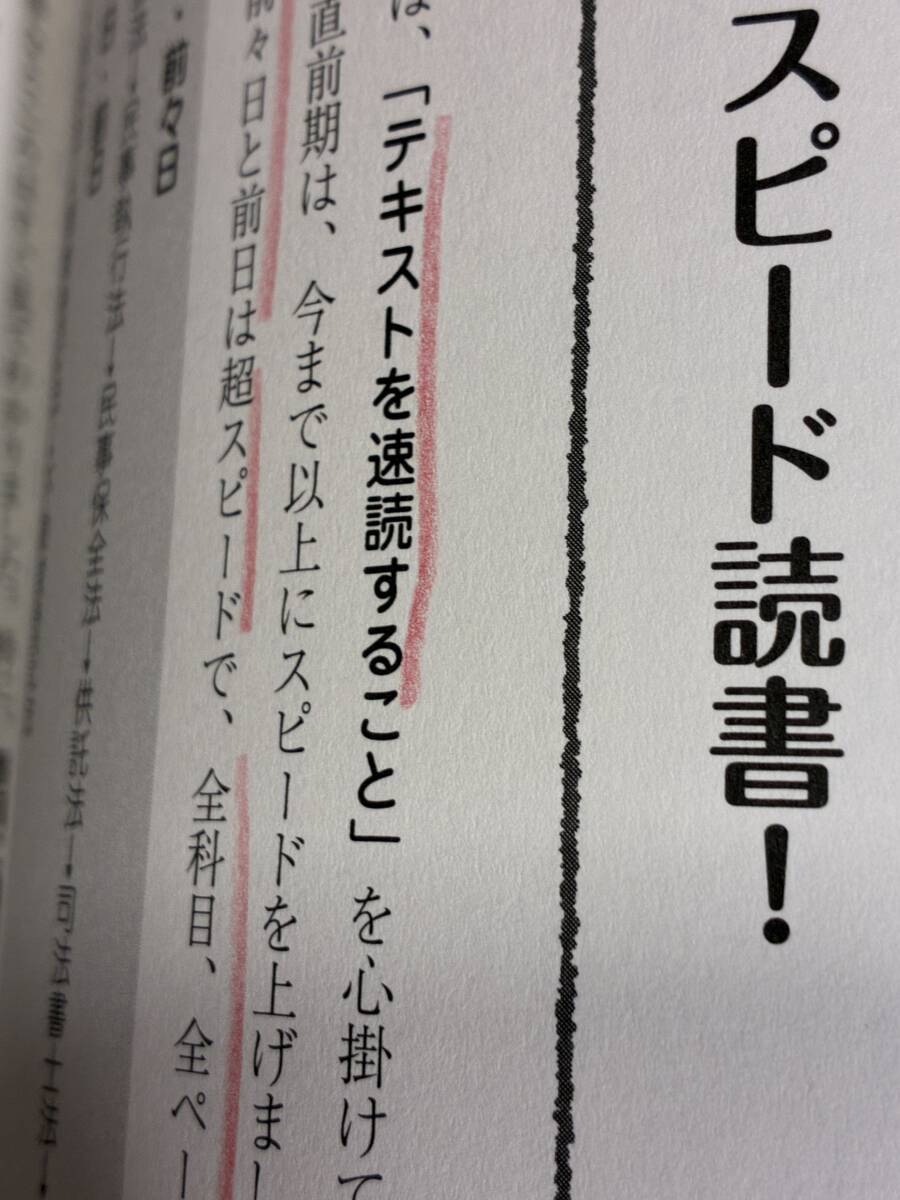 スピード読書!
は、「テキストを速読すること」を心掛けて
直前期は、今まで以上にスピードを上げまし
前々日と前日は超スピードで、全科目、全ペー
・前々日
民事執行法→民事保全法→供託法→司法書士法→